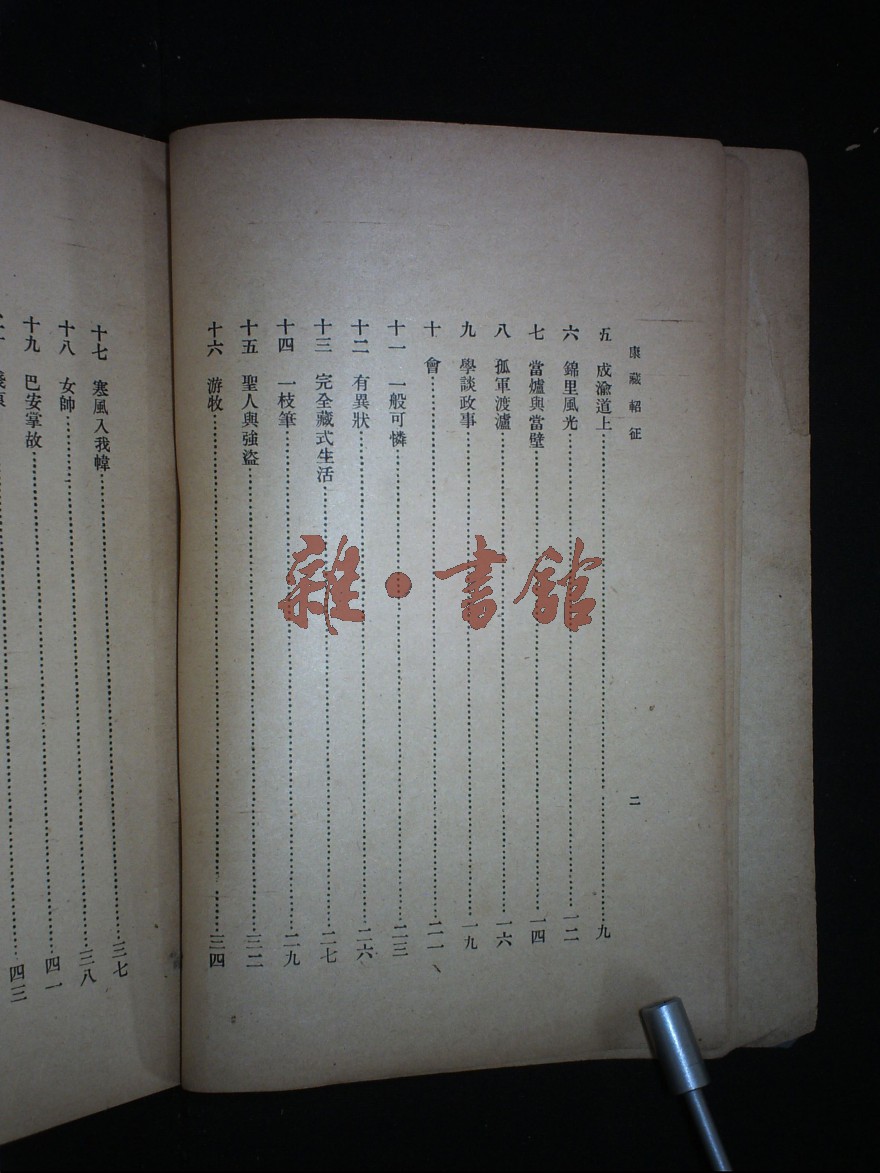 康藏軺征
五　成渝道上…………九
六　錦里風光…………一二
七　當爐與當壁…………一四
八　孤軍渡瀘…………一六
九　學談政事…………一九
十　會…………二一
十一　一般可憐…………二三
十二　有異狀…………二六
十三　完全藏式生活…………二七
十四　一枝筆…………二九
十五　聖人與強盜…………三二
十六　游牧…………三四
二
十七　寒風入我幃…………三七
十八　女帥…………三八
十九　巴安掌故…………四一
四三
雜·書館